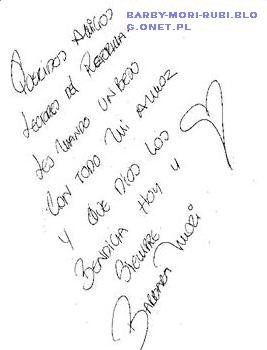 BARBY-MORI-RUBI.BLO
G.ONET.PL
QUERIDOS AMIGOS
LECTORES DEL REFORMA
LES MANDO UN BESO
CON TODO MI AMOR
Y QUE DIOS LOS
BENDIGA HOY Y
SIEMPRE
BARBARA MORI